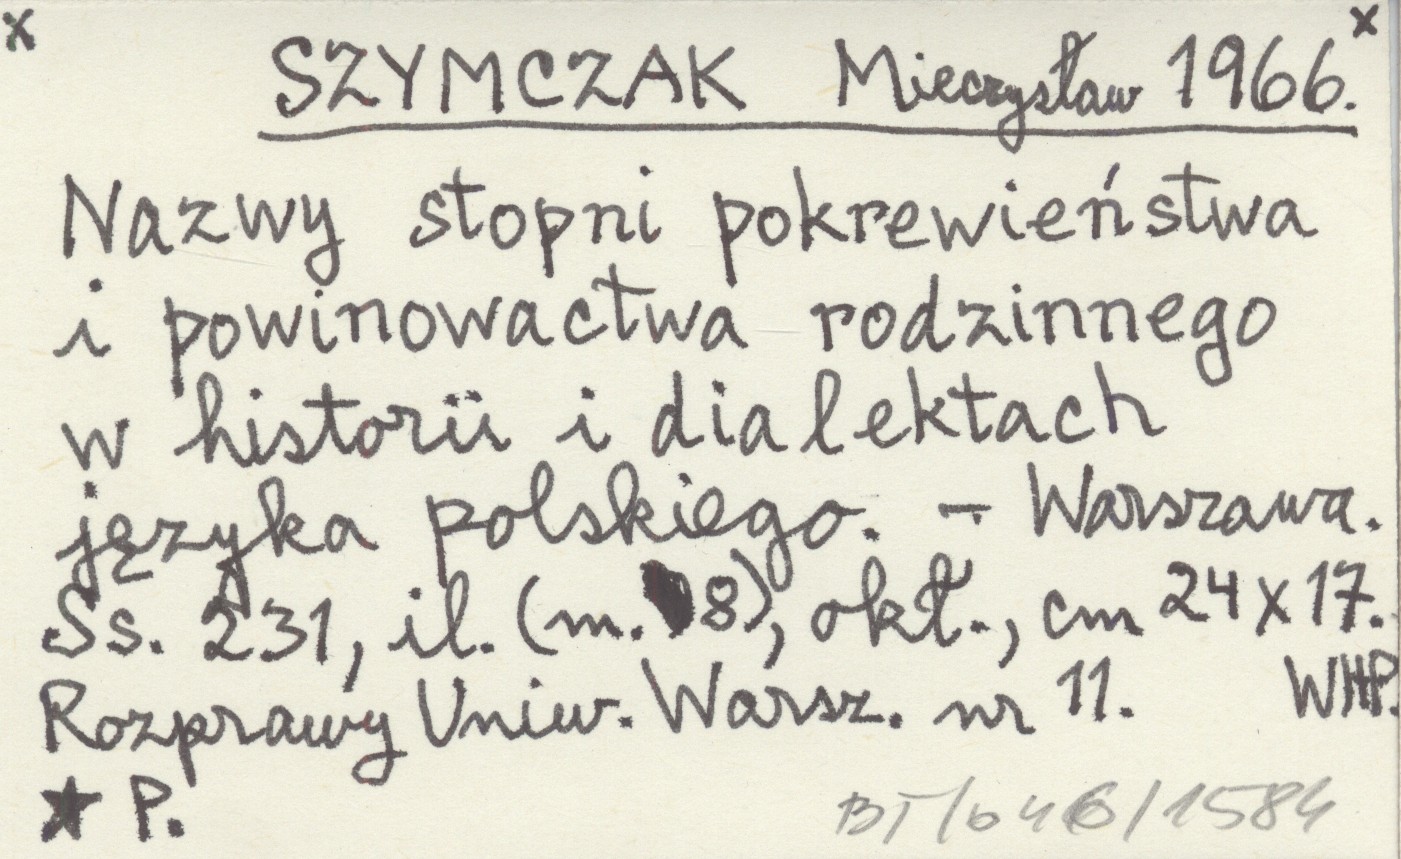 x x
SZYMCZAK Mieczysław 1966.
Nazwy stopni pokrewieństwa
i powinowactwa rodzinnego
w historii i dialektach
języka polskiego. – Warszawa.
Ss. 231, il. (m. 8), okł., cm 24 x 17.
Rozprawy Uniw. Warsz. nr 11. WHP.
★ P.
BT/646/1584